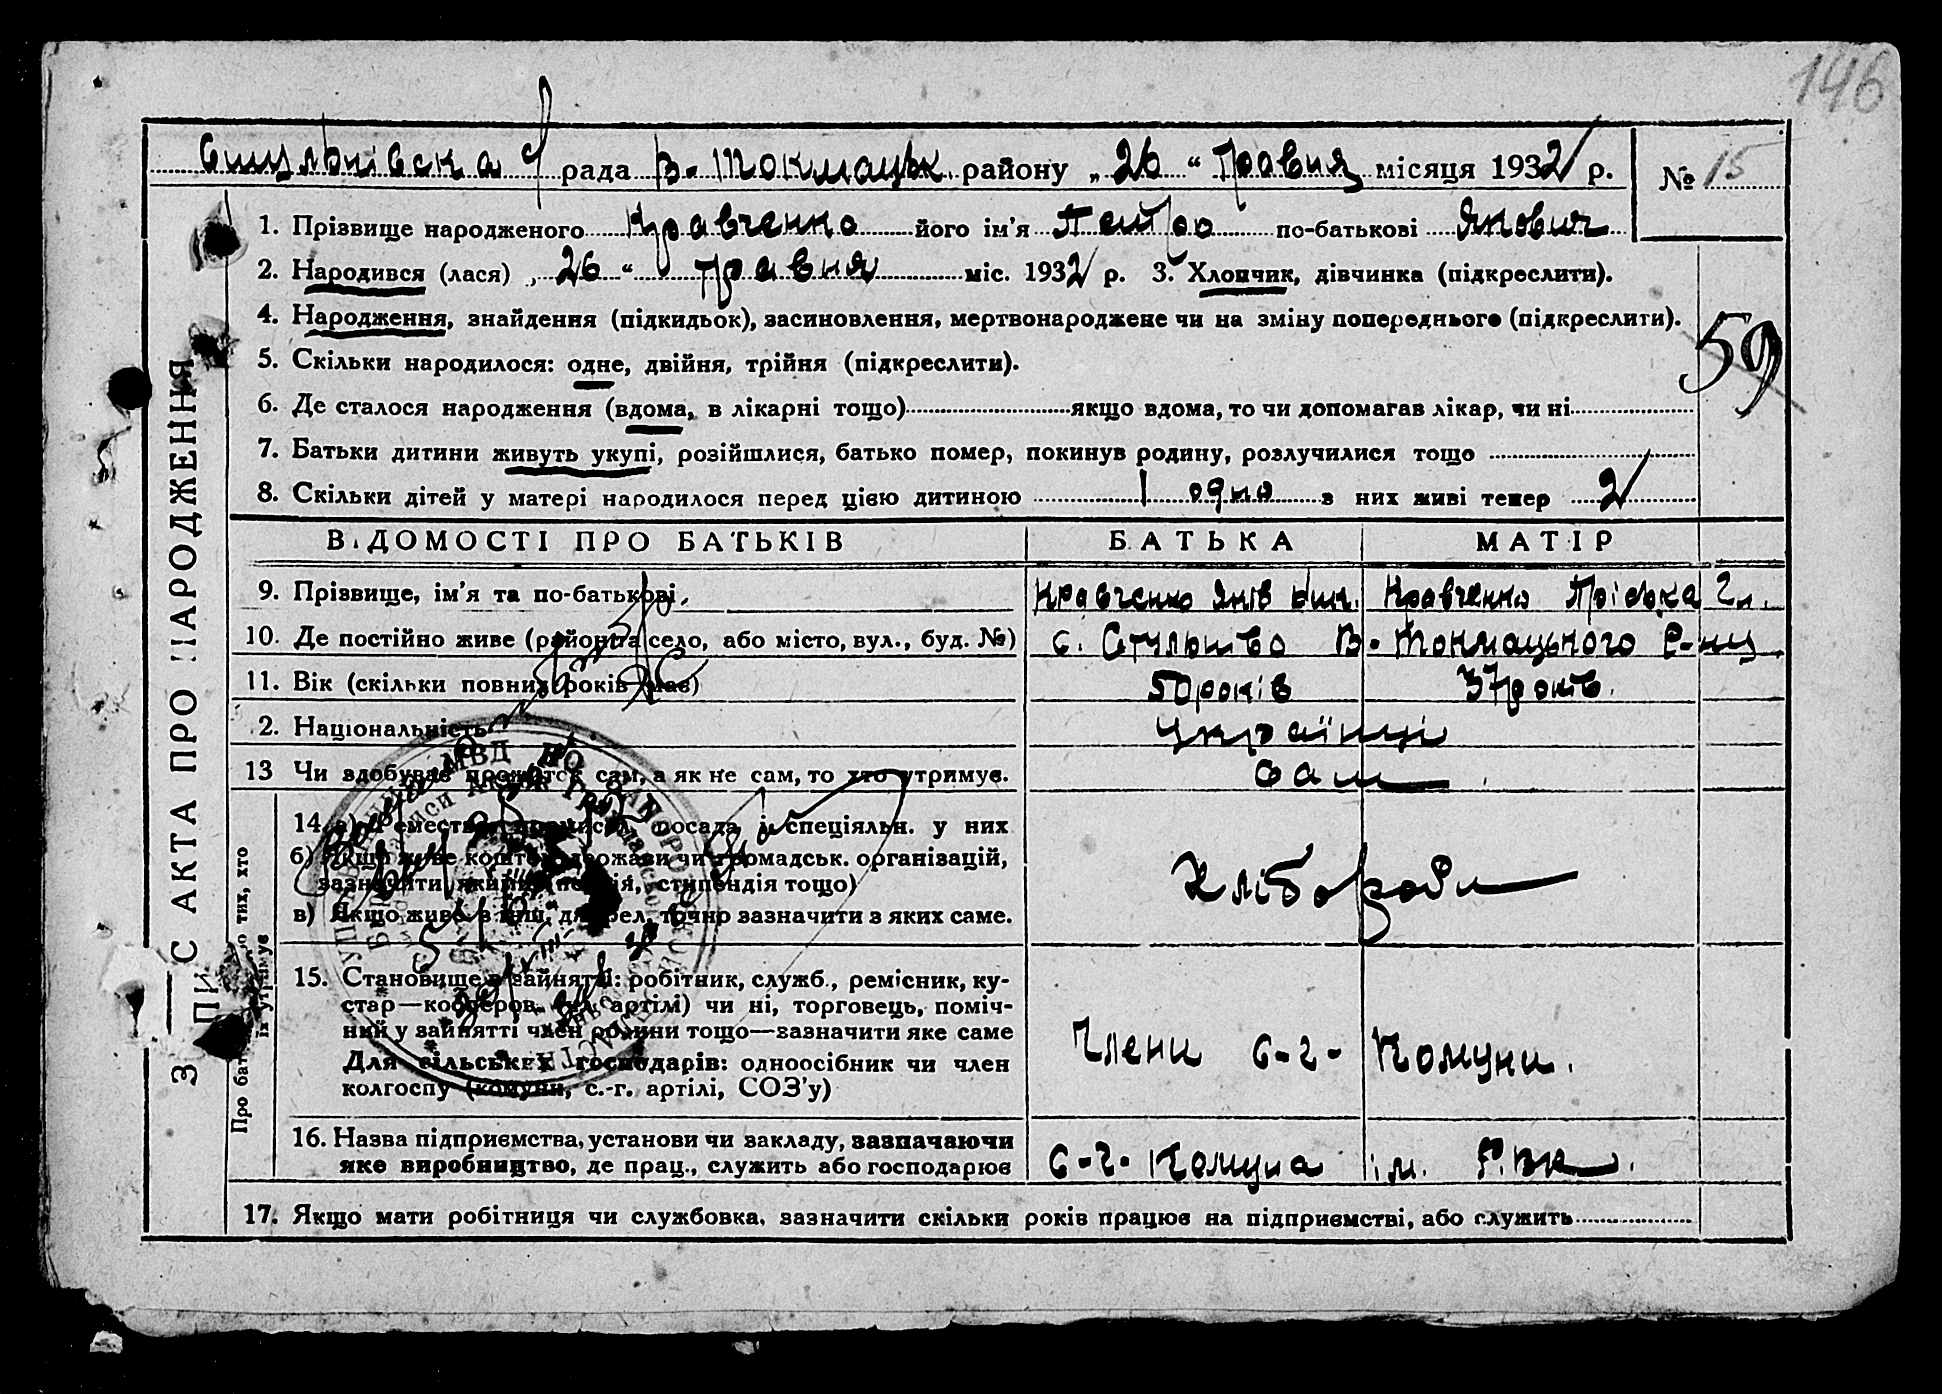 146
Стульнівска рада В-Токмацьк. району „26“ Травня місяця 1932 р. № 15
1. Прізвище народженого Кравченко його ім'я Петро по-батькові Якович
2. Народився (лася) „26“ травня міс. 1932 р. 3. Хлопчик, дівчинка (підкреслити).
4. Народження, знайдення (підкидьок), засиновлення, мертвонароджене чи на зміну попереднього (підкреслити).
59
5. Скільки народилося: одне, двійня, трійня (підкреслити).
6. Де сталося народження (вдома, в лікарні тощо) якщо вдома, то чи допомагав лікар, чи ні
7. Батьки дитини живуть укупі, розійшлися, батько помер, покинув родину, розлучилися тощо
8. Скільки дітей у матері народилося перед цією дитиною 1 одно з них живі тепер 2
ВІДОМОСТІ ПРО БАТЬКІВ БАТЬКА МАТІР
9. Прізвище, ім'я та по-батькові Кравченко Яків Кравченко
10. Де постійно живе (район та село, або місто, вул., буд. №) с. В-Токмацького Р-ну
11. Вік (скільки повних років має) 50 років 37 років.
2. Національність Українці
13 Чи здобуває прожиток сам, а як не сам, то хто утримує. сам
14. а) Ремество, промисел, посада і спеціяльн. у них
б) Якщо живе коштом держави чи громадськ. організацій,
зазначити яких (пенсія, стипендія тощо) Хлібороби
в) Якщо живе в інш. джерел, точно зазначити з яких саме.
15. Становище в зайнятті: робітник, служб., ремісник, ку-
стар—кооперов. (чл. артілі) чи ні, торговець, поміч-
ний у зайнятті член родини тощо—зазначити яке саме
Члени с-г- Комуни.
Для сільських господарів: одноосібник чи член
колгоспу (комуни, с.-г. артілі, СОЗ'у)
16. Назва підприємства, установи чи закладу, зазначаючи
яке виробництво, де прац., служить або господарює с-г- Комуна ім.
17. Якщо мати робітниця чи службовка, зазначити скільки років працює на підприємстві, або служить
ЗАПИС АКТА ПРО НАРОДЖЕННЯ